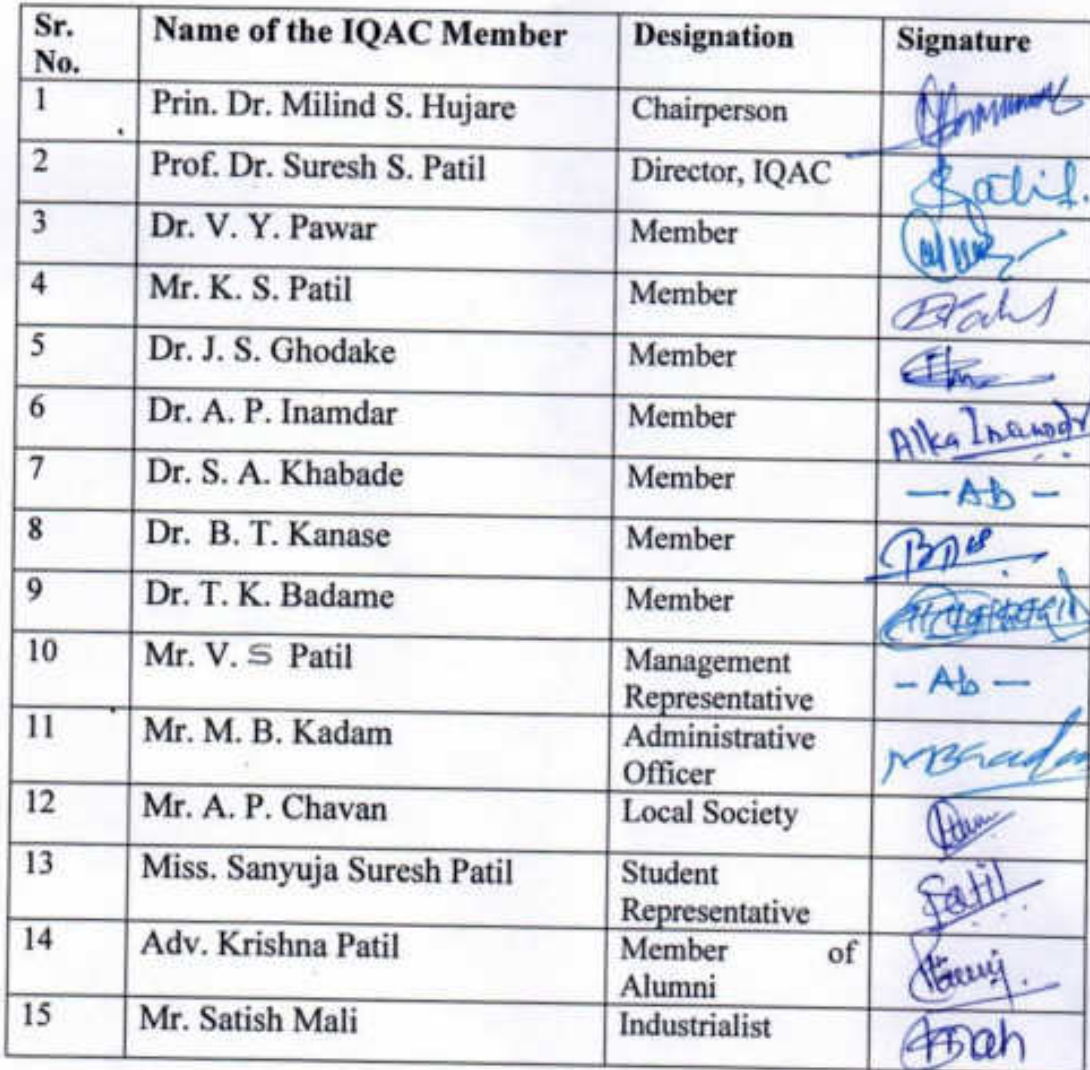 Sr. No. Name of the IQAC Member Designation Signature
1 Prin. Dr. Milind S. Hujare Chairperson
2 Prof. Dr. Suresh S. Patil Director, IQAC
3 Dr. V. Y. Pawar Member
4 Mr. K. S. Patil Member
5 Dr. J. S. Ghodake Member
6 Dr. A. P. Inamdar Member Alka Inamdar
7 Dr. S. A. Khabade Member - Ab -
8 Dr. B. T. Kanase Member
9 Dr. T. K. Badame Member
10 Mr. V. S Patil Management Representative - Ab -
11 Mr. M. B. Kadam Administrative Officer
12 Mr. A. P. Chavan Local Society
13 Miss. Sanyuja Suresh Patil Student Representative Patil
14 Adv. Krishna Patil Member of Alumni
15 Mr. Satish Mali Industrialist